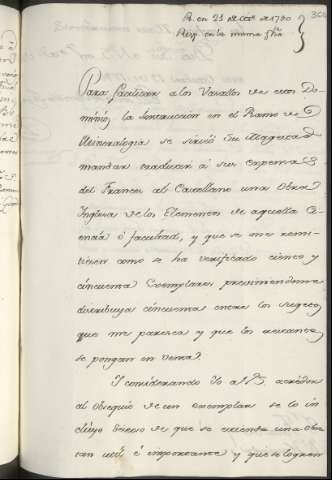 R. en 23 de Oct.e de 1790
Resp. en la misma fha
Para facilitar a los Vasallos de estos Do-
minios la instruccion en el Ramo de
Mineralogia se sirvió Su Magestad
mandar traducir a sus expensas
del Frances al Castellano una Obra
Inglesa de los Elementos de aquella Ci-
encia ó facultad, y que se me remi-
tiesen como se ha verificado ciento y
cincuenta Exemplares previniendome
distribuya cincuenta entre los sugetos
que me paresca y que los restantes
se pongan en venta.
Y considerando Yo a V.S. acrehedor
al obsequio de un exemplar se lo in-
cluyo deseoso de que se extienda una obra
tan util é importante y que se logren